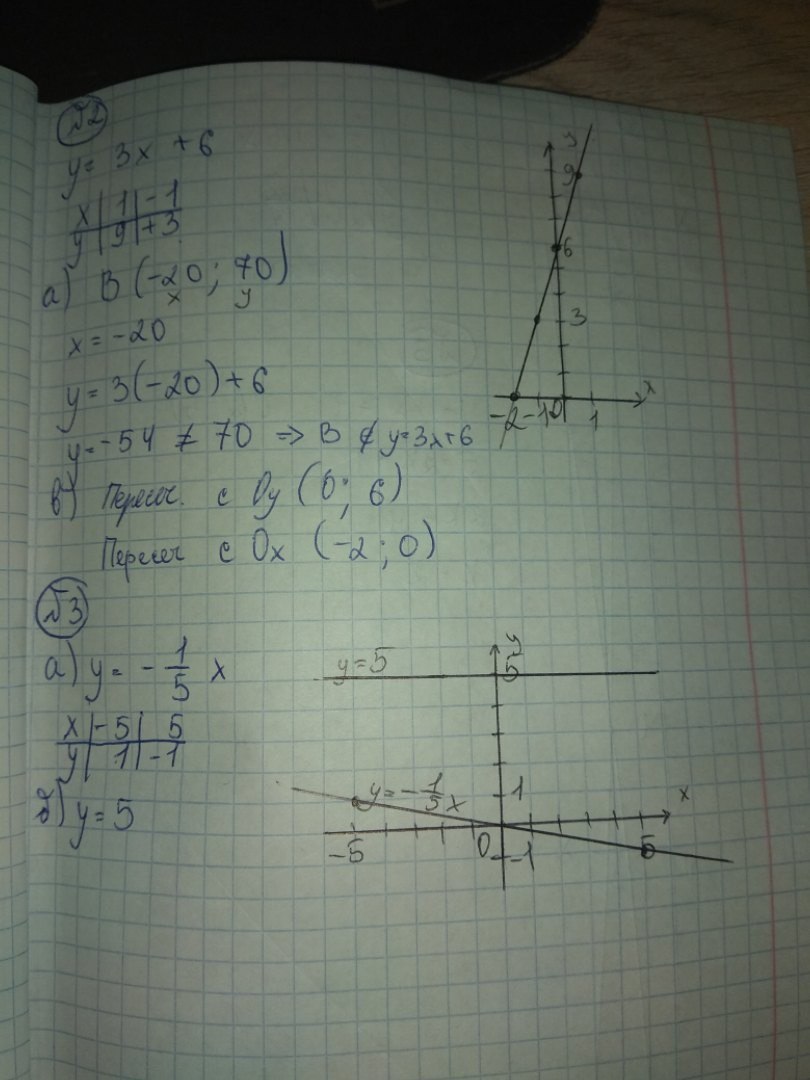 №2
y = 3x + 6
x | 1 | -1
y | 9 | +3
а) B (-20 ; 70)
x y
x = -20
y = 3(-20) + 6
y = -54 ≠ 70 => B ∉ y=3x+6
в) Пересеч. с Oy (0; 6)
Пересеч с Ox (-2 ; 0)
y
9
6
3
x
-2 -1 0 1
№3
а) y = - 1/5 x
x | -5 | 5
y | 1 | -1
б) y = 5
y
y = 5
5
y = - 1/5 x
1
x
-5
0
-1
5